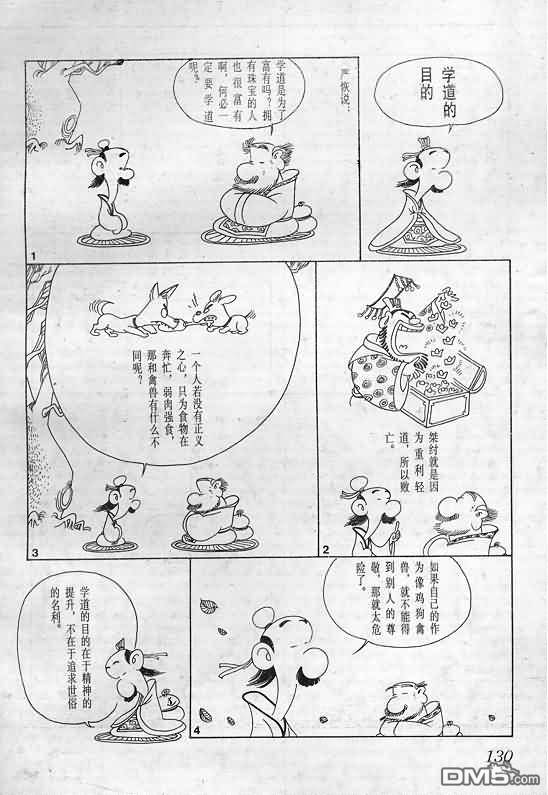 学道的
目的
严恢说：
学道是为了
富有吗？拥
有珠宝的人
也很富有
啊，何必一
定要学道
呢？
1
桀纣就是因
为重利轻
道，所以败
亡。
2
一个人若没有正义
之心，只为食物在
奔忙，弱肉强食，
那和禽兽有什么不
同呢？
3
如果自己的作
为像鸡狗禽
兽，就不能得
到别人的尊
敬，那就太危
险了。
4
学道的目的在于精神的
提升，不在于追求世俗
的名利。
130
DM5.com